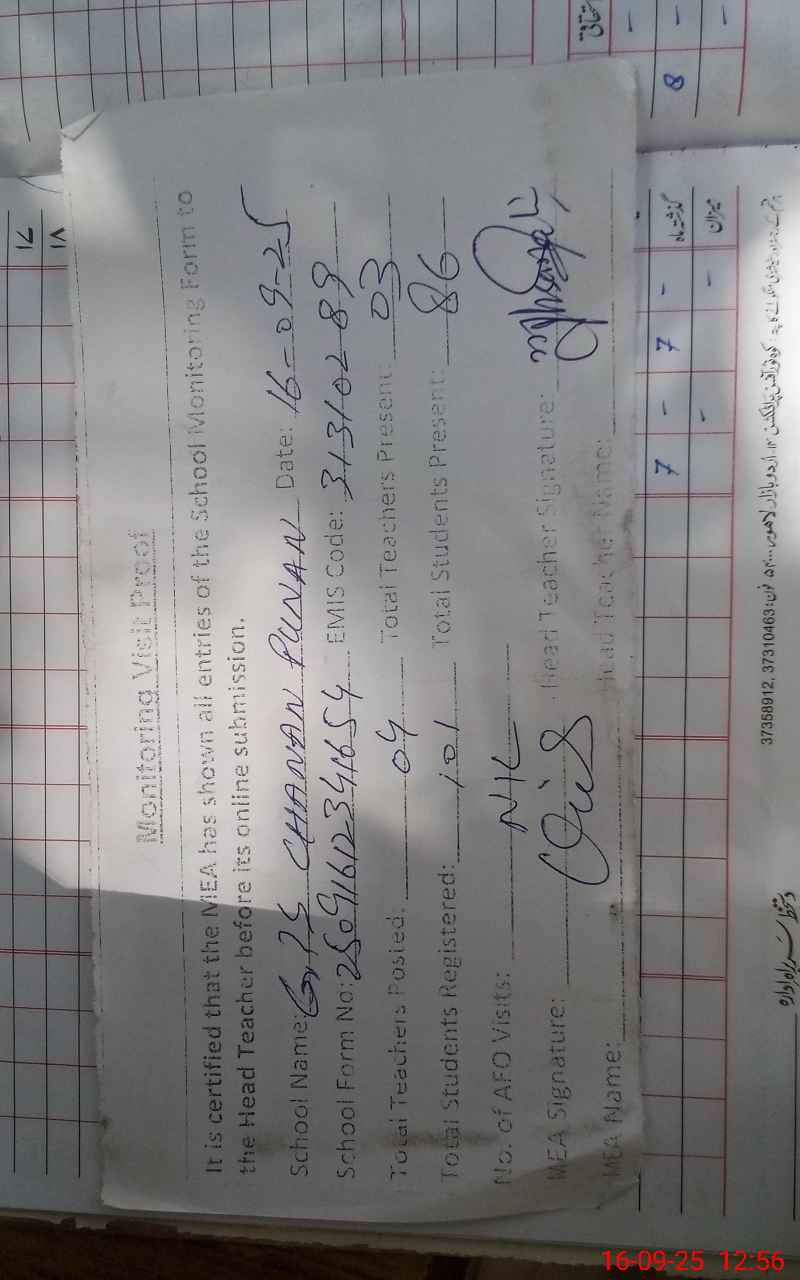 Monitoring Visit Proof
It is certified that the MEA has shown all entries of the School Monitoring Form to
the Head Teacher before its online submission.
School Name: GPS CHANAN PUNAN Date: 16-09-25
School Form No: 25091612341654 EMIS Code: 31310289
Total Teachers Posted: 04 Total Teachers Present: 03
Total Students Registered: 101 Total Students Present: 86
No. of AFO Visits: NIL
MEA Signature: Head Teacher Signature:
MEA Name: Head Teacher Name:
۱۷
۱۸
8 - -
گذشتہ ماہ - 7 - 7
میزان - -
دستخط سربراہ ادارہ
37358912, 37310463
16-09-25 12:56